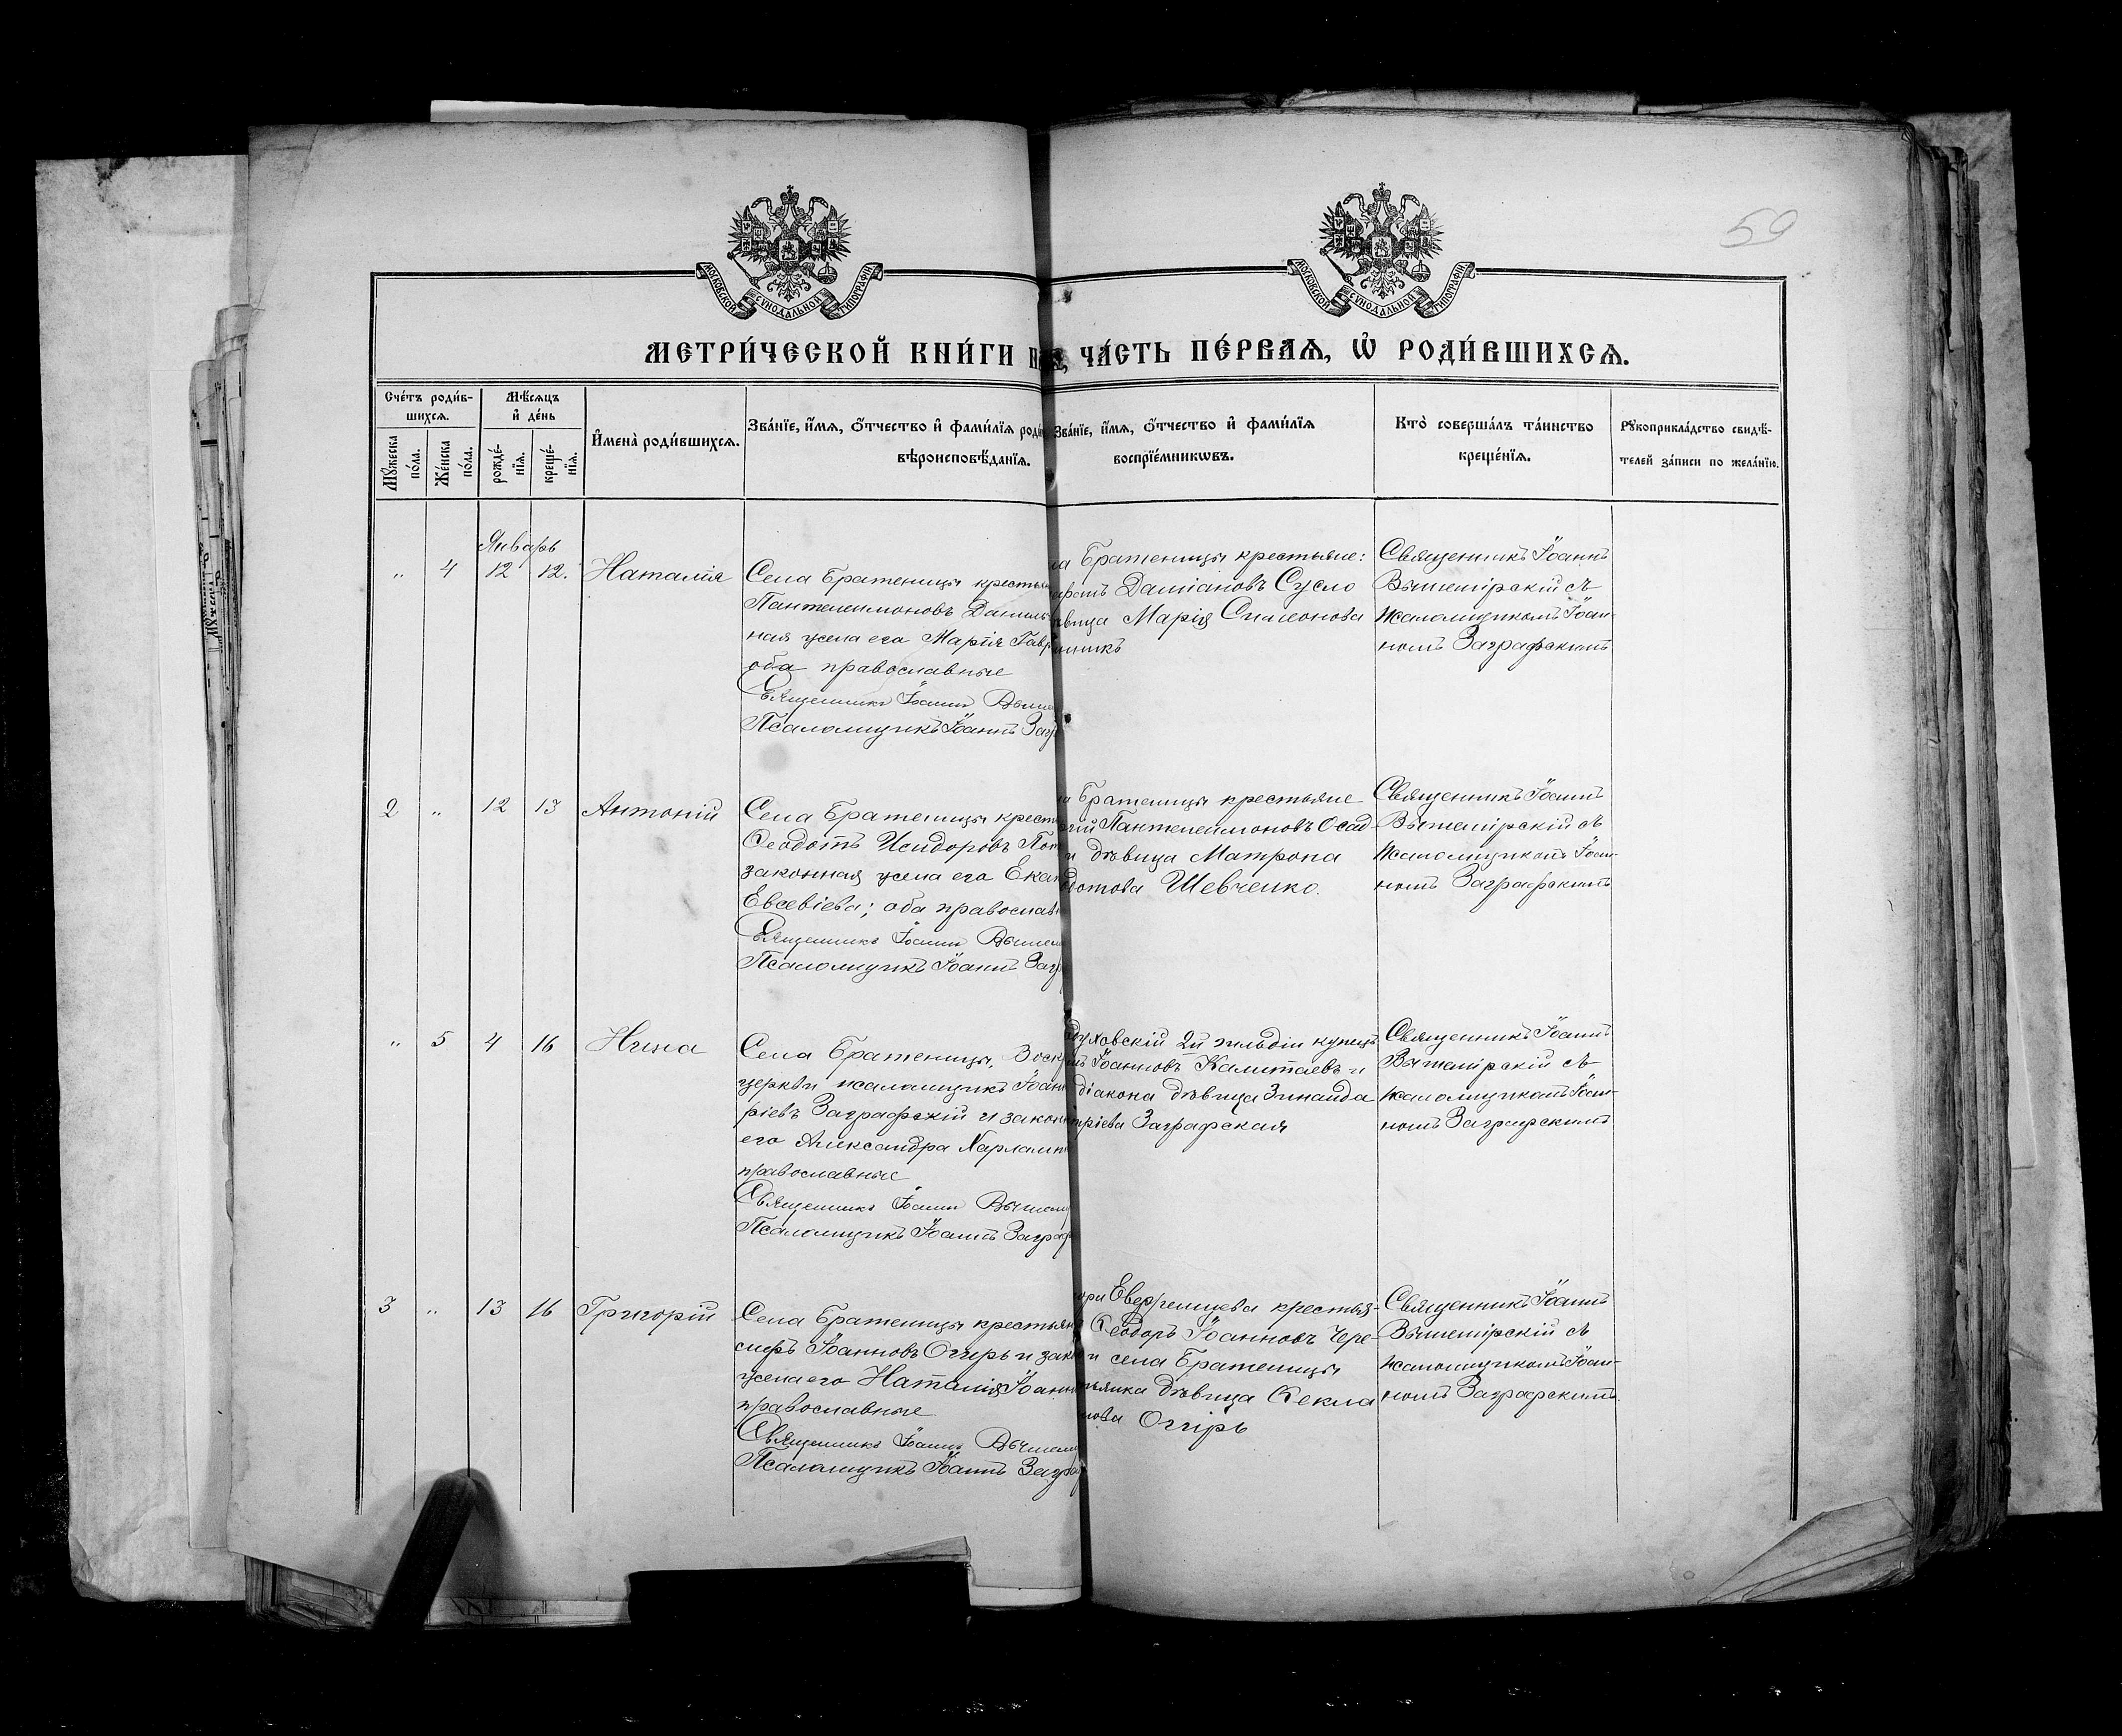 59
МОСКОВСКОЙ СѴНОДАЛЬНОЙ ТИПОГРАФІИ
МОСКОВСКОЙ СѴНОДАЛЬНОЙ ТИПОГРАФІИ
МЕТРИ́ЧЕСКОЙ КНИ́ГИ
ЧА́СТЬ ПЕ́РВАѦ, Ѡ҆ РОДИ́ВШИХСѦ.
Сче́тъ роди́в-
шихсѧ.
Мꙋ́жеска
по́ла.
Же́нска
по́ла.
Мѣ́сѧцъ
и҆ де́нь
рожде́-
нїѧ.
креще́-
нїѧ.
И҆мена̀ роди́вшихсѧ.
Зва́нїе, и҆́мѧ, ѻ҆́тчество и҆ фами́лїѧ роди
вѣроисповѣ́данїѧ.
Зва́нїе, и҆́мѧ, ѻ҆́тчество и҆ фами́лїѧ
воспрїе́мникѡвъ.
Кто̀ соверша́лъ та́инство
креще́нїѧ.
Рꙋкоприкла́дство свидѣ́-
телей за́писи по жела́нїю.
Январь
" 4 12 12. Наталія
Села Братеницы крестья
Пантелеимоновъ Данил
ная жена его Марія Гавр
оба православные
Священникъ Іоаннъ Выше
Псаломщикъ Іоаннъ Загр
Братеницы крестьяне:
Даміановъ Сусло
вица Марія Симеонова
Священникъ Іоаннъ
Вышемірскій съ
псаломщикомъ Іоан-
номъ Заграфскимъ
2 " 12 13 Антоній
Села Братеницы крест
Ѳеодотъ Исидоровъ Пот
законная жена его Ека
Евсевіева; оба православ
Священникъ Іоаннъ Вышем
Псаломщикъ Іоаннъ Загр
Братеницы крестьяне
Пантелеимоновъ Осад-
и дѣвица Матрона
дотова Шевченко.
Священникъ Іоаннъ
Вышемірскій съ
псаломщикомъ Іоан-
номъ Заграфскимъ
" 5 4 16 Нина
Села Братеницы, Воскр
церкви псаломщикъ Іоанн
ріевъ Заграфскій и закон
его Александра Харламп
православные
Священникъ Іоаннъ Вышем
Псаломщикъ Іоаннъ Заграф
духовскій 2й гильдіи купецъ
Іоанновъ Калитаевъ и
діакона дѣвица Зинаида
тріева Заграфская
Священникъ Іоаннъ
Вышемірскій съ
псаломщикомъ Іоан-
номъ Заграфскимъ
3 " 13 16 Григорій
Села Братеницы крестьян
сифъ Іоанновъ Огирь и зак
жена его Наталія Іоанн
православные
Священникъ Іоаннъ Вышем
Псаломщикъ Іоаннъ Загра
крестья-
Ѳеодоръ Іоанновъ Чере-
и села Братеницы
дѣвица Ѳекла
нова Огирь
Священникъ Іоаннъ
Вышемірскій съ
псаломщикомъ Іоан-
номъ Заграфскимъ